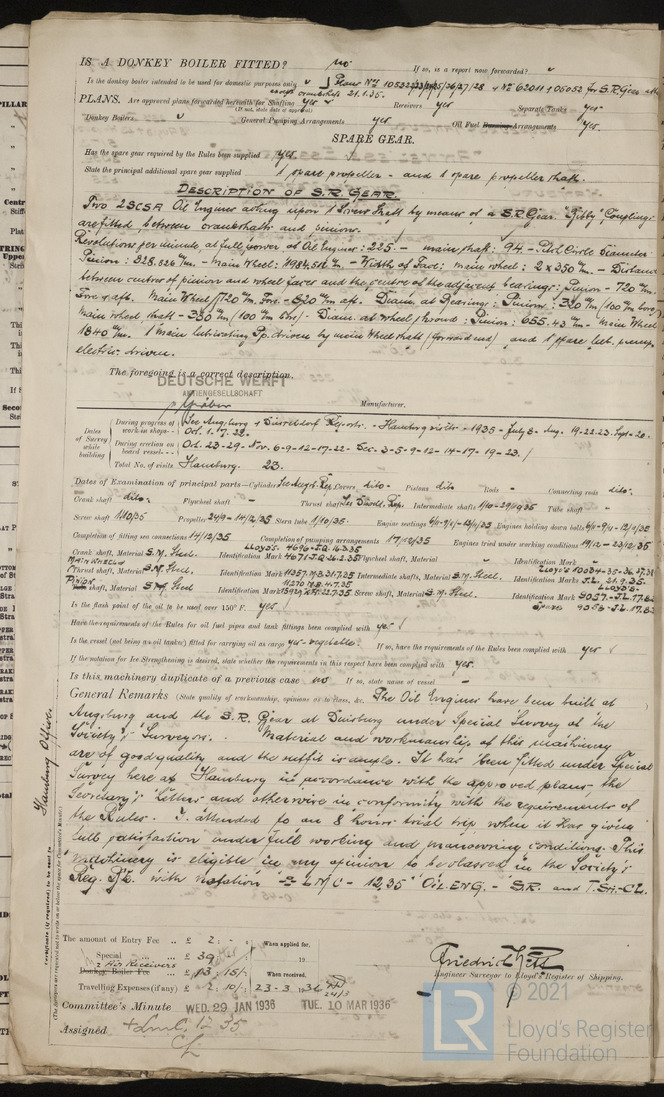 IS A DONKEY BOILER FITTED? no If so, is a report now forwarded?
Is the donkey boiler intended to be used for domestic purposes only
PLANS. Are approved plans forwarded herewith for Shafting yes Receivers yes Separate Tanks yes
(If not, state date of approval)
except crankshafts 21.1.35.
Donkey Boilers General Pumping Arrangements yes Oil Fuel Burning Arrangements yes.
SPARE GEAR.
Has the spare gear required by the Rules been supplied yes.
State the principal additional spare gear supplied 1 spare propeller - and 1 spare propeller shaft.
DESCRIPTION OF S.R. GEAR.
Two 2SCSA Oil Engines acting upon 1 Screw Shaft by means of a S.R. Gear. "Bibby" Couplings
are fitted between crankshafts and pinions.
Revolutions per minute at full power of Oil Engines: 225. - main shaft: 94 - Pitch Circle Diameter
Pinion: 828.526 m/m - Main Wheel: - Width of Face: main wheel: 2 x 350 m/m - Distance
between centres of pinion and wheel faces and the centre of the adjacent bearings: Pinion - 720 m/m
Fore & aft. Main Wheel 720 m/m Fore - 820 m/m aft. Diam at Bearings: Pinions: 320 m/m (100 m/m bore)
main wheel shaft - 330 m/m (100 m/m bore) - Diam. at wheel shroud: Pinion: 655.43 m/m - Main Wheel
1840 m/m. 1 Main lubricating Pp. driven by main wheel shaft (forward end) and 1 spare lub. pump
electric driven.
The foregoing is a correct description.
DEUTSCHE WERFT
AKTIENGESELLSCHAFT
Manufacturer.
Dates of Survey while building
During progress of work in shops - - See Augsburg & Düsseldorf Reports. - Hamburg visits - 1935 - July 8 - Aug. 19-22-23. Sept - 20.
Oct. 1.17.22.
During erection on board vessel - - - Oct. 23-29 - Nov. 6-9-12-17-22 - Dec. 3-5-9-12-14-17-19-23.
Total No. of visits Hamburg. 23.
Dates of Examination of principal parts—Cylinders See Augsb. Rep. Covers dito - Pistons dito Rods - Connecting rods dito.
Crank shaft dito. Flywheel shaft - Thrust shaft See Düsseld. Rep. Intermediate shafts 1/10-29/10/35 Tube shaft -
Screw shaft 1/10/35 Propeller 24/9 - 14/12/35 Stern tube 1/10/35. Engine seatings Engines holding down bolts
Completion of fitting sea connections 14/12/35 Completion of pumping arrangements 17/12/35 Engines tried under working conditions 19/12 - 23/12/35
Crank shaft, Material S.M. Steel. Identification Mark Flywheel shaft, Material - Identification Mark -
MAIN WHEEL
Thrust shaft, Material S.M. Steel. Identification Mark Intermediate shafts, Material S.M. Steel. Identification Mark
PINION
shaft, Material S.M. Steel Identification Mark Screw shaft, Material S.M. Steel. Identification Mark
Is the flash point of the oil to be used over 150°F. yes
Have the requirements of the Rules for oil fuel pipes and tank fittings been complied with yes
Is the vessel (not being an oil tanker) fitted for carrying oil as cargo yes - vegetable. If so, have the requirements of the Rules been complied with yes
If the notation for Ice Strengthening is desired, state whether the requirements in this respect have been complied with yes.
Is this machinery duplicate of a previous case no If so, state name of vessel -
General Remarks (State quality of workmanship, opinions as to class, &c. The Oil Engines have been built at
Augsburg and the S.R. Gear at Duisburg under Special Survey of the
Society's Surveyors. Material and workmanship of this machinery
are of good quality and the outfit is ample. It has been fitted under Special
Survey here at Hamburg in accordance with the approved plans, the
Secretary's letters and otherwise in conformity with the requirements of
the Rules. I attended to an 8 hours trial trip when it has given
full satisfaction under full working and manoevring conditions. This
machinery is eligible in my opinion to be classed in the Society's
Reg. Bk. with notation LMC - 12,35 OIL ENG. - S.R. and T.S.A-CL.
Hamburg Office.
The amount of Entry Fee .. £ 2 : - : When applied for,
Special ... £ 39 19
2 Air Receivers
Donkey Boiler Fee ... £ 13 : 15/- When received,
Travelling Expenses (if any) £ 2 : 10/- 23 - 3 - 1936
Engineer Surveyor to Lloyd's Register of Shipping.
Committee's Minute WED. 29 JAN 1936 TUE. 10 MAR 1936
Assigned + L.M.C. 12 35
CL
© 2021
LR
Lloyd's Register
Foundation